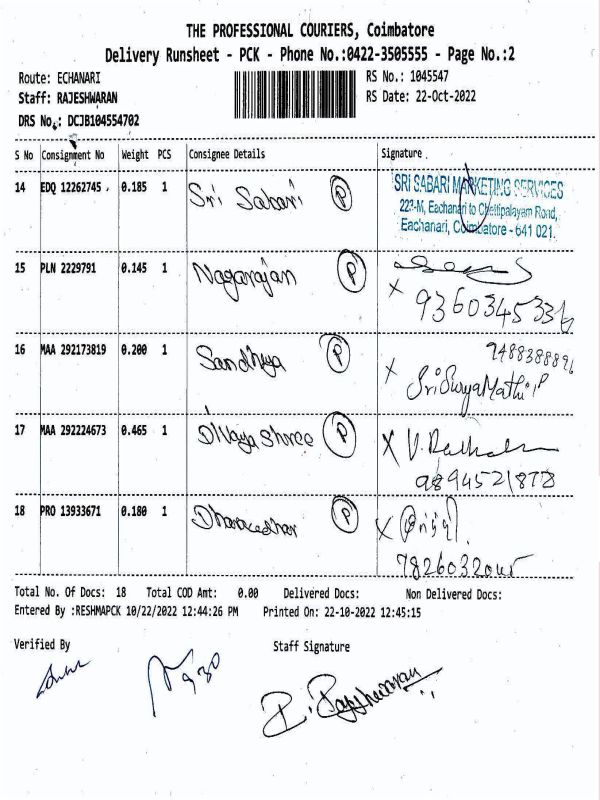 THE PROFESSIONAL COURIERS, Coimbatore
Delivery Runsheet - PCK - Phone No.:0422-3505555 - Page No.:2
Route: ECHANARI RS No.: 1045547
Staff: RAJESHWARAN RS Date: 22-Oct-2022
DRS No.: DCJB104554702
S No Consignment No Weight PCS Consignee Details Signature
14 EDQ 12262745 0.185 1 Sri Sabari P SRI SABARI MARKETING SERVICES
223-M, Eachanari to Chettipalayam Road,
Eachanari, Coimbatore - 641 021.
15 PLN 2229791 0.145 1 Nagarajan P
X 9360345336
16 MAA 292173819 0.200 1 Sandhya P 9488388896
X SriSuryaMathi P
17 MAA 292224673 0.465 1 Divyashree P X V.
9894521878
18 PRO 13933671 0.180 1 P X
Total No. Of Docs: 18 Total COD Amt: 0.00 Delivered Docs: Non Delivered Docs:
Entered By :RESHMAPCK 10/22/2022 12:44:26 PM Printed On: 22-10-2022 12:45:15
Verified By Staff Signature
R. Rajeshwaran